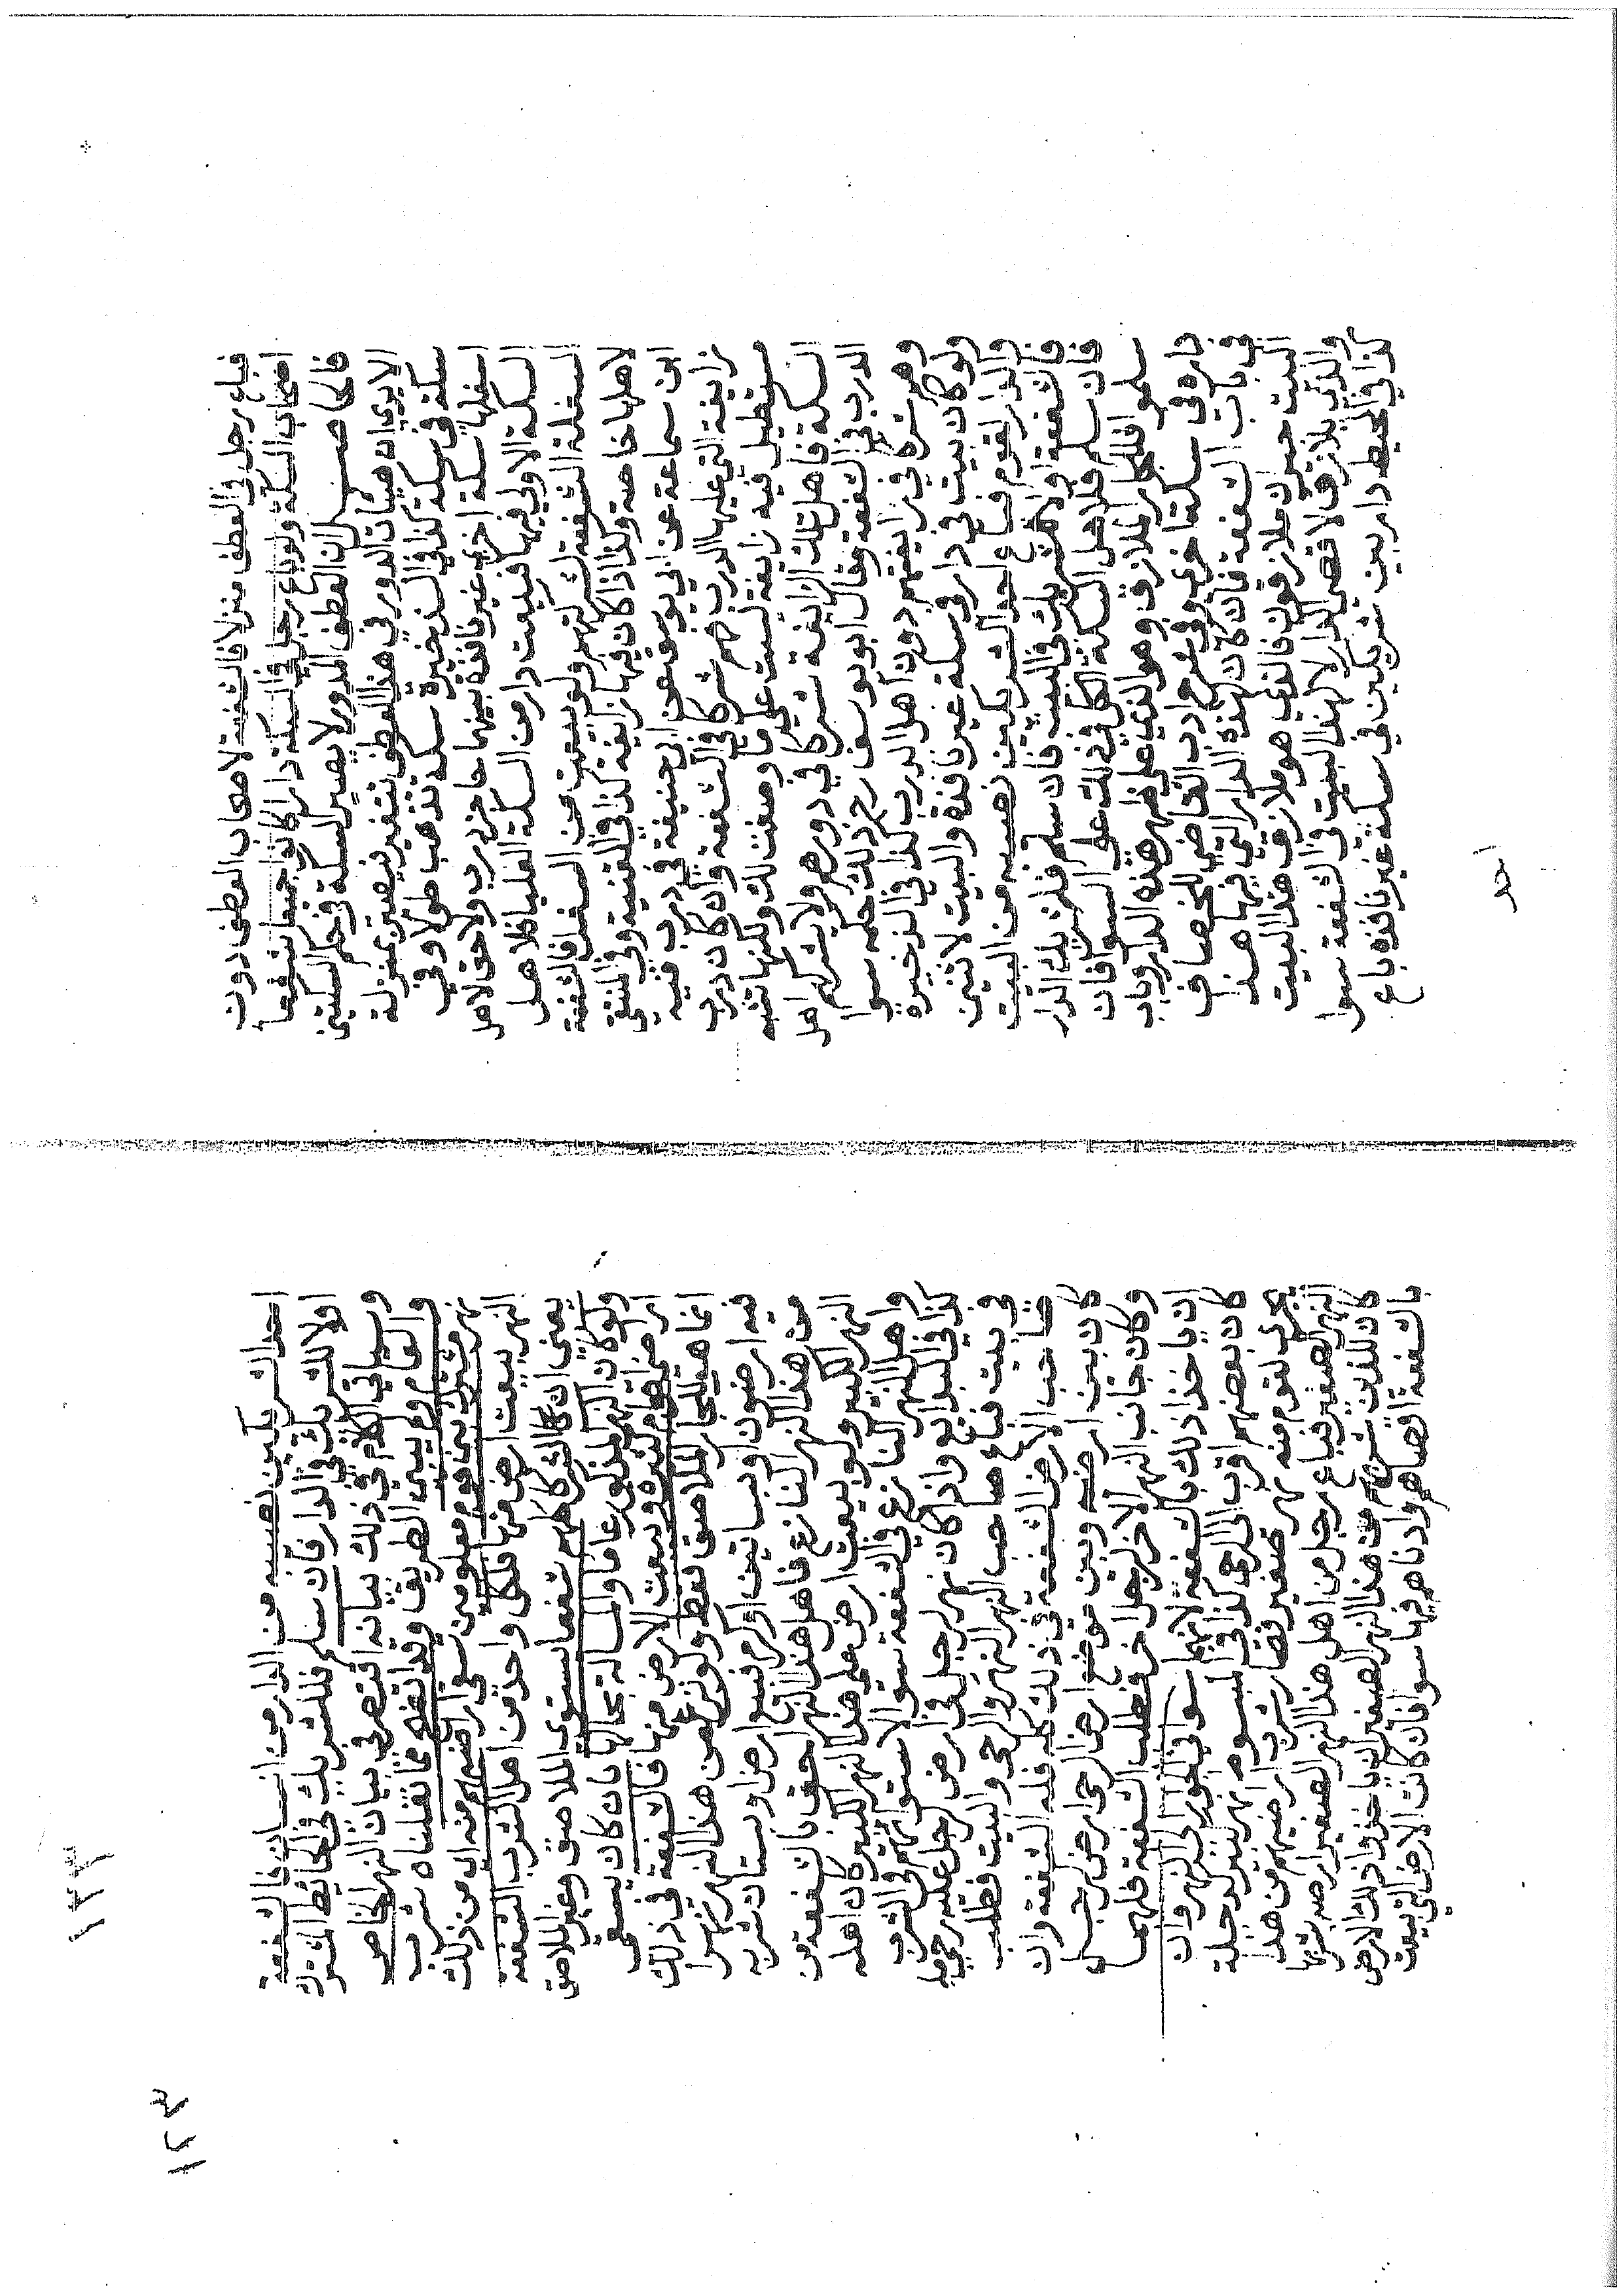 فباع رجل في العطف منزلا فالشفعة لاصحاب العطف دون
اصحاب السكة ولو باع رجل في السكة دارا كانوا جميعا شفعا
فالحاصل ان العطف المدور لا يصير السكة في حكم السكتين
الا يري ان هيئات الدور في هذا العطف تتغير فيصير بمنزلة
سكة في سكة كذا في الذخيرة سكة تذهب طولا وفي
اسفلها سكة اخري غير نافذة بينهما حاجز درب ولا حق لاهل
السكة الاولي فيها فبيعت دار من السكة العليا فلاهل
السفلة الشفعة لشركتهم ولو بيعت من السفلي فالشفعة
لاهلها خاصة وكذا اذا كان فيها زايغة كذا في القنية وفي المنتقي
ابن سماعة عن ابي يوسف عن ابي حنيفة في درب فيه
زايغة التي عليها الدرب هم شركا في الشفعة وان كان درب
مستطيل فيه زايغة ليست علي ما وصفت لك ولكنها تشبه
السكة فاهل تلك الزايغة شركا في دورهم ولا يشركهم اهل
الدرب في الشفعة وقال ابو يوسف رح ذلك حكمه سوا
وهم شركا في زايغتهم دون اهل الدرب كذا في الذخيرة
ولو كان بيت في دار في سكة غير نافذة والبيت لاثنين
والدار لقوم فباع احد الشريكين نصيبه من البيت
فالشفعة اولا للشريك في البيت فان سلم فلشريك الدار
فان سلم فلاهل السكة الكل في ذلك علي السوا فان
سلموا فللجار الملازق وهو الذي علي ظهر هذه الدار وباب
داره في سكة اخري وفي شرح ادب القاضي للخصاف
في باب الشفعة فان كان لهذه الدار التي فيها هذا
البيت جيران ملازقون فالذي هو ملازق هذا البيت
والذي يلازق لا قصي الدار لا لهذا البيت في الشفعة سوا
كذا في المحيط دار بين شريكين في سكة غير نافذة باع
احد
احد الشريكين نصيبه من الدار من انسان فالشفعة
اولا للشريك في الدار فان سلم فللشريك في الحائط المشترك
وسياتي الكلام في ذلك بيانه اقتصر في بيان النهر الخاص
والعام ولم يبين الطريق وقد اتضح مما نقلناه شرب
نهر مشترك بين قوم معلومين تسقي اراضيهم منه اي من ذلك
النهر بيعت ارض منها فلكل واحد من اهل الشرب الشفعة
يعني ان كان الشركا كلهم شفعا يستوي الملاصق وغير الملاصق
ولو كان النهر المذكور عاما والمسالة بحالها بان كان يسقي
اراضي قوم كثيرة وبيعت الارض منها فالشفعة في ذلك
انما هي للجار الملاصق فقط ولو نزع من هذا النهر نهرا
فيه ارضون او بساتين او كرم فبيع ارض او بستان شربه
من هذا النهر النازع فاهل هذا النهر احق بالشفعة من
النهر الكبير ولو بيعت ارض علي هذا النهر الكبير كان اهله
واهل النهر النازع في الشفعة سوا لاستوائهم في الشرب
كذا في البدائع واذا كان نهر لرجل في ارض لرجل عليه رحي ما
في بيت فباع صاحب النهر النهر والرحي والبيت فطلب
صاحب الارض الشفعة في ذلك كله فله الشفعة وان
كان بين ارضه وبين موضع ارض الرحي ارض لرجل
وكان جانب النهر الاخر لرجل اخر فطلب الشفعة فلهما
ان ياخذا ذلك بالشفعة لانهما سوا في الجوار الي النهر وان
كان بعضهم اقرب الي الرحي كذا في المبسوط نهر كبير كدجلة
يجري لقوم منه نهر صغير فصار شرب ارضيهم من هذا
النهر الصغير فباع رجل من اهل هذا النهر الصغير ارضه بشربها
كان للذين شربهم من هذا النهر الصغير ان ياخذوا ذلك الارض
بالشفعة اقصاهم وادناهم فيها سوا فان كانت الارض التي بيعت
١٢٣
١٢٣